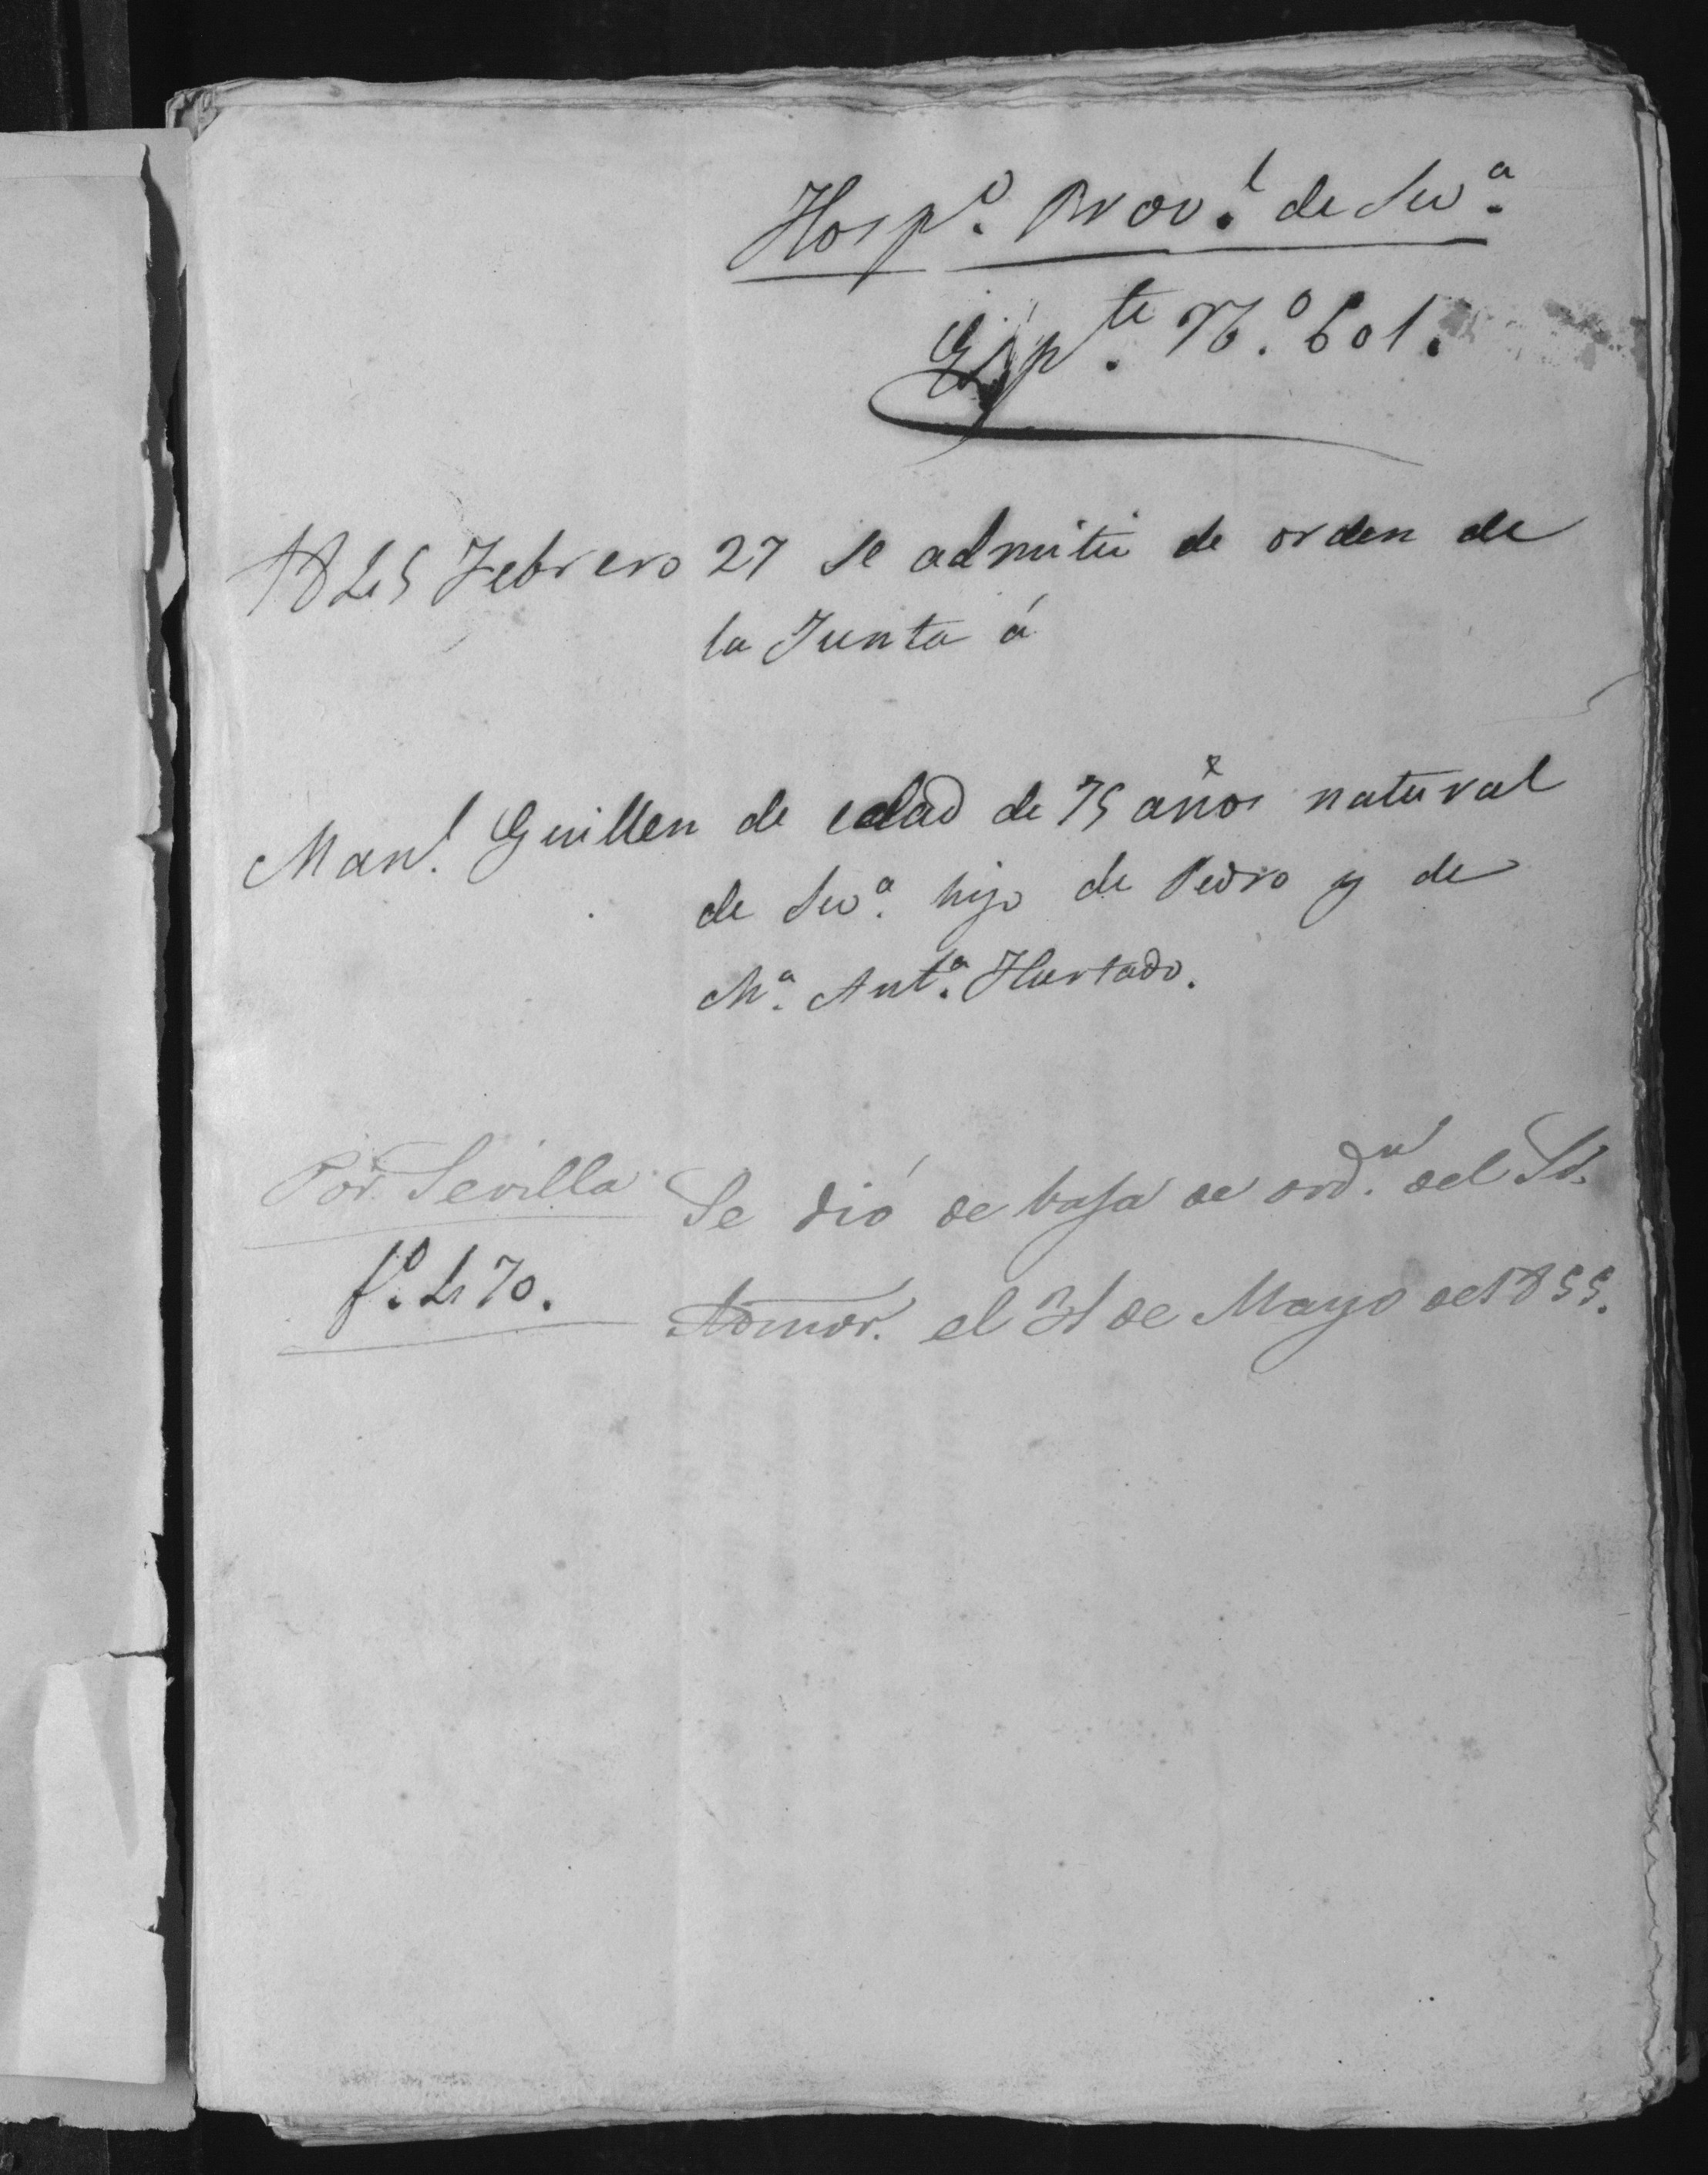 Hosp.º Prov.l de Sev.ª
Esp.te N.º 601.
1845 Febrero 27 se admitió de orden de
la Junta á
Man.l Guillen de edad de 75 años natural
de Sev.ª hijo de Pedro y de
M.ª Ant.ª Hurtado.
Por Sevilla
f.º 470.
Se dió de baja de ord.n del Sr.
Admor. el 31 de Mayo de 1855.